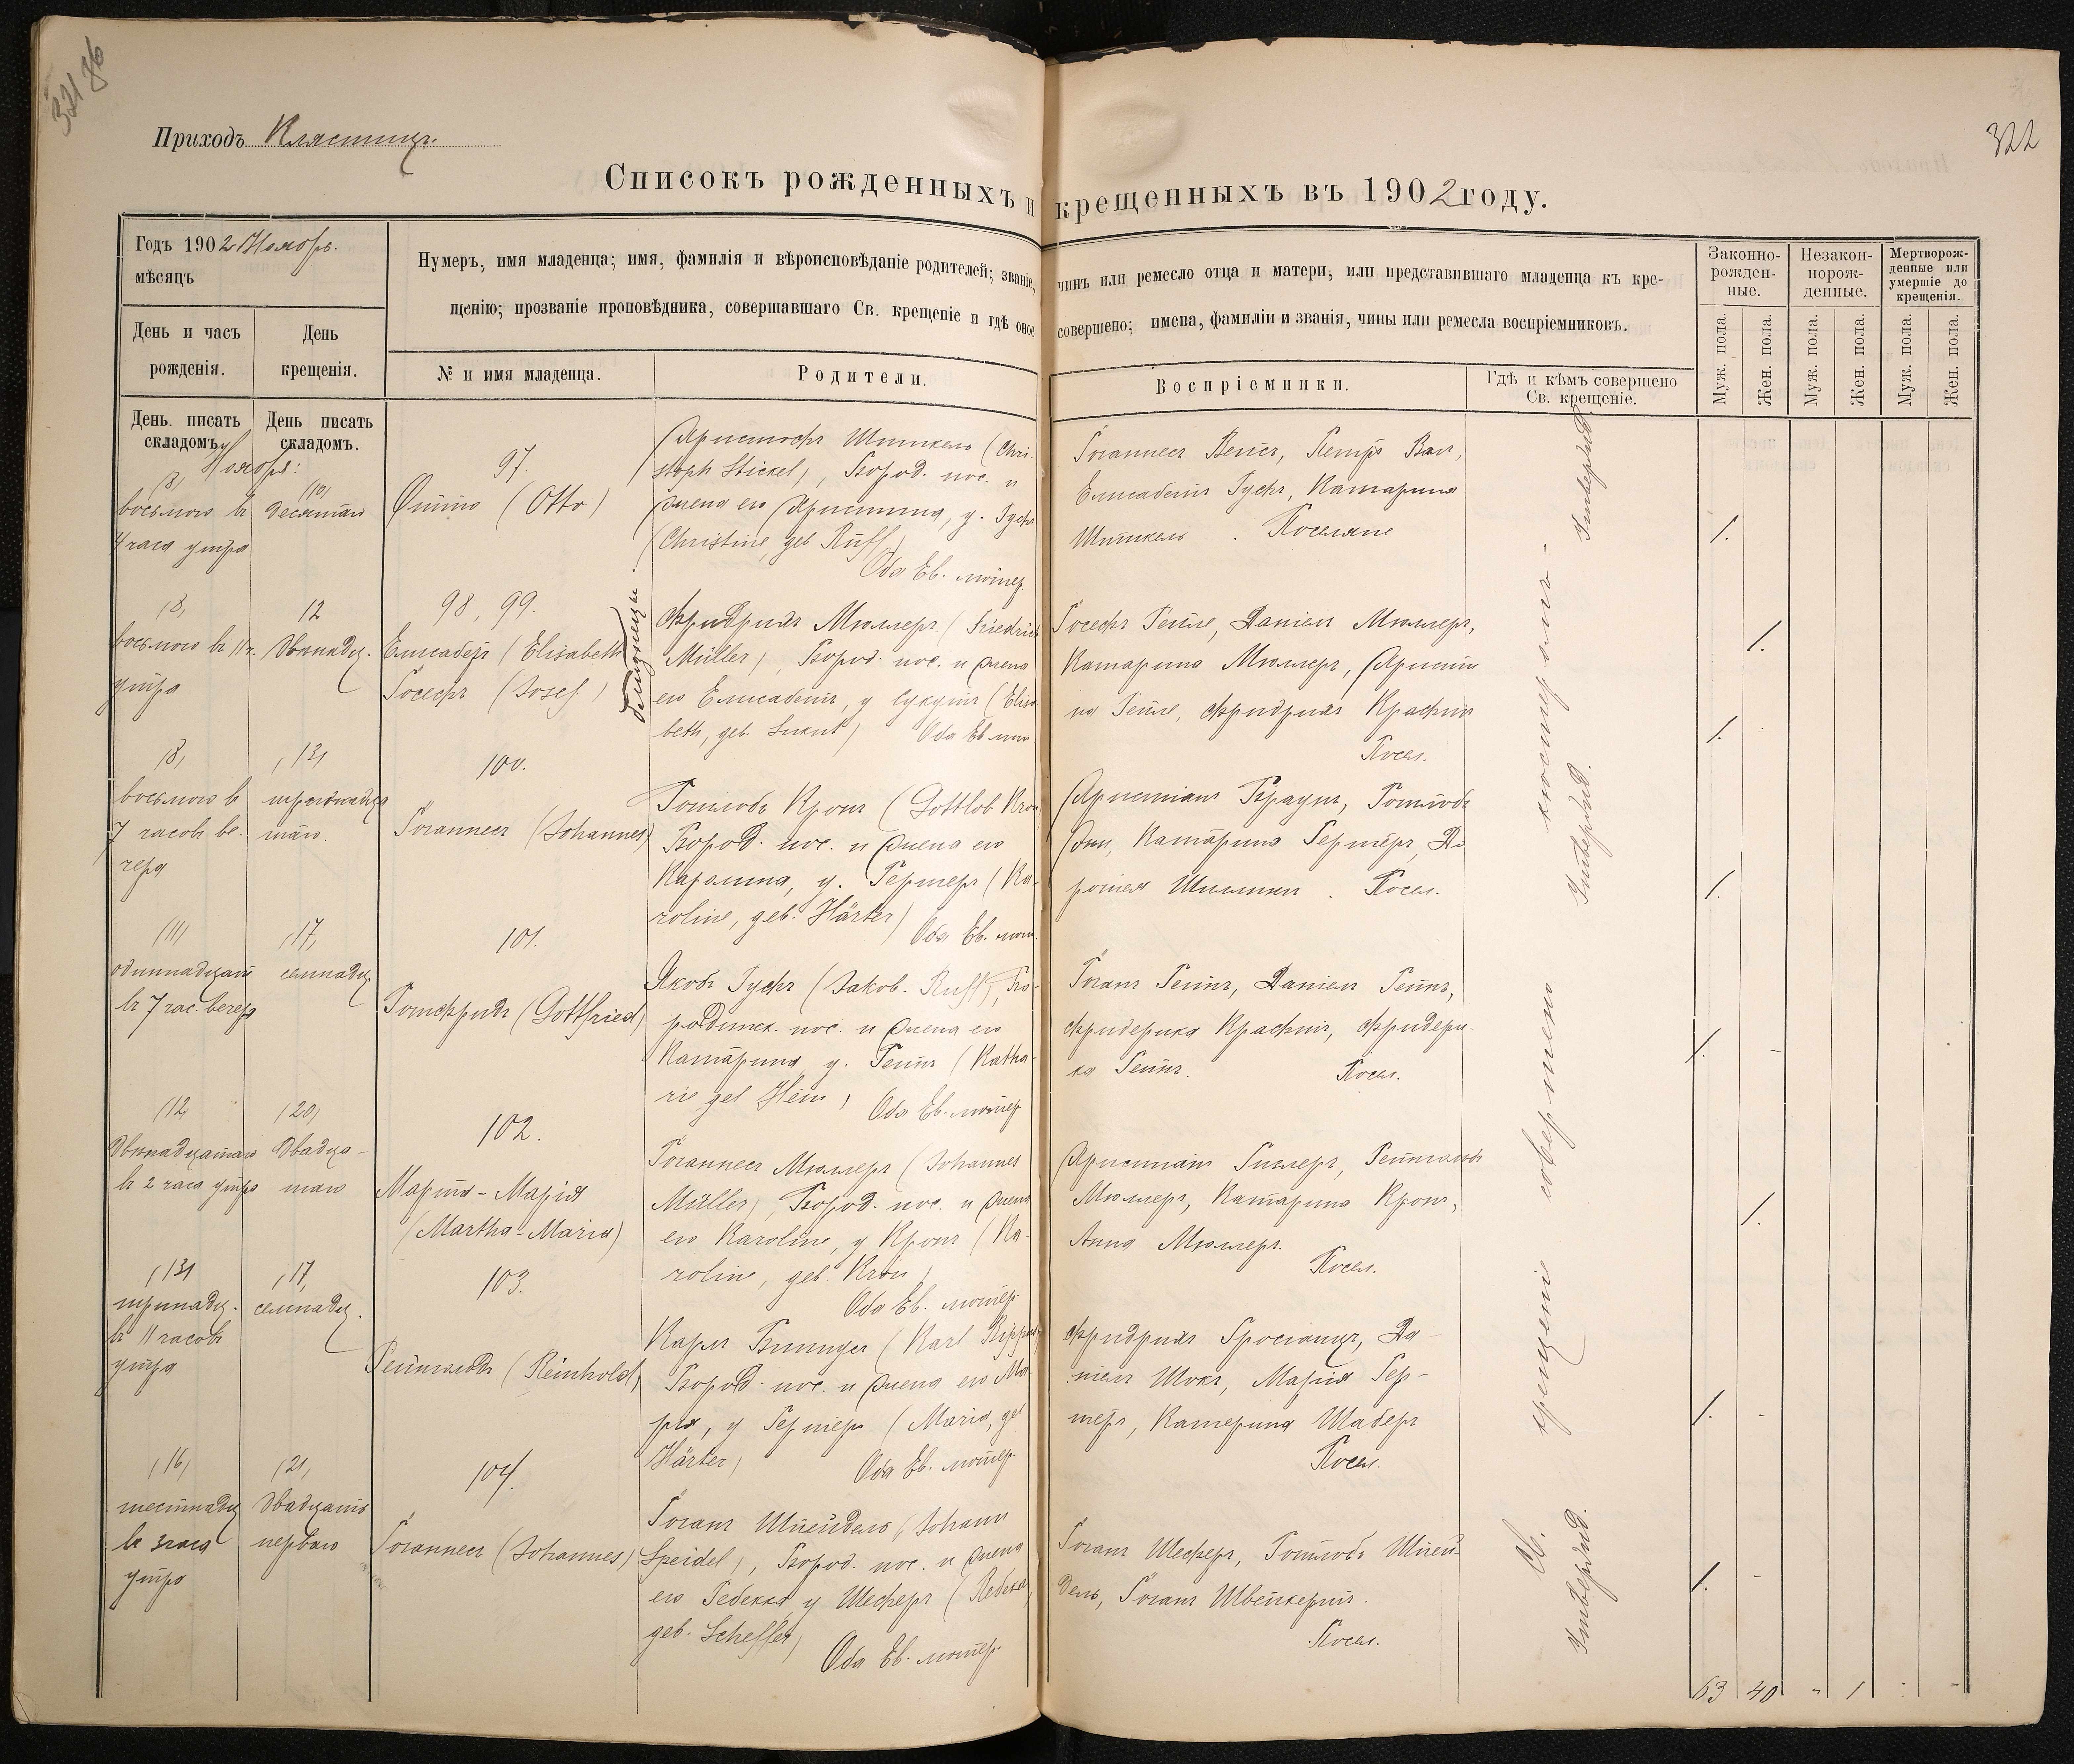 322
Приходъ Клястицъ.
Списокъ рожденныхъ и крещенныхъ въ 1902 году.
Годъ 1902 Ноябрь.
мѣсяцъ
День и часъ
рожденія.
День
крещенія.
День писать
складомъ.
День писать
складомъ.
Нумеръ, имя младенца; имя, фамилія и вѣроисповѣданіе родителей; званіе, чинъ или ремесло отца и матери, или представившаго младенца къ кре-
щенію; прозваніе проповѣдника, совершавшаго Св. крещеніе и гдѣ оное совершено; имена, фамиліи и званія, чины или ремесла воспріемниковъ.
№ и имя младенца.
Родители.
Воспріемники.
Гдѣ и кѣмъ совершено
Св. крещеніе.
Законно-
рожден-
ные.
Незакон-
норож-
денные.
Мертворож-
денные или
умершіе до
крещенія.
Муж. пола.
Жен. пола.
Муж. пола.
Жен. пола.
Муж. пола.
Жен. пола.
Ноября:
(8)
восьмого въ
4 часа утра
(10)
десятаго
97.
Отто (Otto)
Христофъ Штикель (Chri-
stoph Stickel), Бород. пос. и
жена его Христина, у. Руфъ
(Christine, geb. Ruff)
Оба Ев. лютер.
Елисабетъ Руфъ, Катарина
Штикель. Поселяне
1.
(8)
восьмого въ 11 ч.
утра
12
двѣнадц.
98, 99.
Елисабетъ (Elisabeth)
Іосефъ (Josef)
близнецы
Фридрихъ Мюллеръ (Friedrich
Müller), Бород. пос. и жена
его Елисабетъ, у Сукутъ (Elisa-
beth, geb. Sukut) Оба Ев. лют.
Іосефъ Гейне, Даніелъ Мюллеръ,
Катарина Мюллеръ, Христи-
на Гейне, Фридрихъ Крафтъ
Посел.
1.
1.
(8)
восьмого въ
7 часовъ ве-
чера
(13)
тринадца-
таго.
100.
Іоганнесъ (Johannes)
Готлобъ Кронъ (Gottlob Kron)
Бород. пос. и жена его
Каролина, у. Гертеръ (Ka-
roline, geb. Härter)
Оба Ев. лют.
Христіанъ Браунъ, Готлобъ
Катарина Гертеръ, До-
ротея Посел.
1.
(11)
одиннадцат.
въ 7 час. вечера
(17)
семнадц.
101.
Готфридъ (Gottfried)
Якобъ Руфъ (Jakob Ruff), Бо-
родинск. пос. и жена его
Катарина, у. Гейнъ (Katha-
rie geb Hein)
Оба Ев. лютер.
Іоганъ Гейнъ, Даніелъ Гейнъ,
Фридерика Крафтъ, Фридери-
ка Гейнъ. Посел.
1. -
(12)
двѣнадцатаго
въ 2 часа утра
(20)
двадца-
таго
102.
Марта-Марія
(Martha-Maria)
Іоганнесъ Мюллеръ (Johannes
Müller), Бород. пос. и жена
его Karoline, у Кронъ (Ka-
roline, geb. Kron)
Оба Ев. лютер.
Христіанъ Гейнгольдъ
Мюллеръ, Катарина Кронъ,
Анна Мюллеръ.
Посел.
1.
(13)
тринадц.
въ 11 часовъ
утра
(17)
семнадц.
103.
Рейнгольдъ (Reinhold)
Карлъ (Karl
Бород. пос. и жена его Ма-
рія, у Гертеръ (Maria, geb
Härter)
Оба Ев. лютер.
Фридрихъ Да-
ніелъ Шокъ, Марія Гер-
теръ, Катерина Шаберъ
Посел.
1. -
(16)
шестнадц
въ 3 часа
утра
(21)
двадцать
перваго
104.
Іоганнесъ (Johannes)
Іоганъ Шпейдель (Johann
Speidel), Бород. пос. и жена
его Ребекка, у Шеферъ (Rebekka,
geb. Scheffer)
Оба Ев. лютер.
Іоганъ Шеферъ, Готлобъ Шпей-
дель, Іоганъ Швейкертъ.
Посел.
1. -
Св. крещеніе совершено кюстеромъ -
63 40 - 1 - -